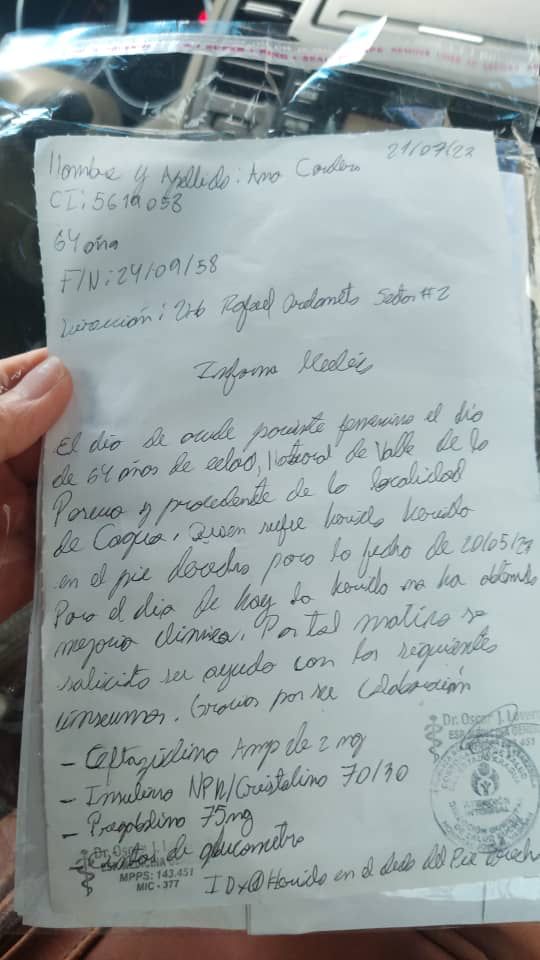 21/07/23
Nombre y Apellido: Ana Cordero
CI: 5619058
64 año
F/N: 24/09/58
Dirección: Urb Rafael Sector #2
Informe Medico
El dia de acude paciente femenino el dia
de 64 años de edad, Natural de Valle de la
Pascua y procedente de la localidad
de Cagua. Quien refie herida
en el pie derecho para la fecha de 20/05/23
Para el dia de hoy la herida no ha obtenido
mejoria clinica. Por tal motivo se
solicita su ayuda con los siguientes
insumos. Gracias por su Colaboración
- Ceftazidina Amp de 2 mg
- Insulina NPH/Cristalina 70/30
- Pregabalina 75mg
- de glucometro
IDx Herida en el dedo del Pie derecho
Dr. Oscar J.
ESP. MEDICINA GENERAL
MPPS: 143.451
MIC - 377